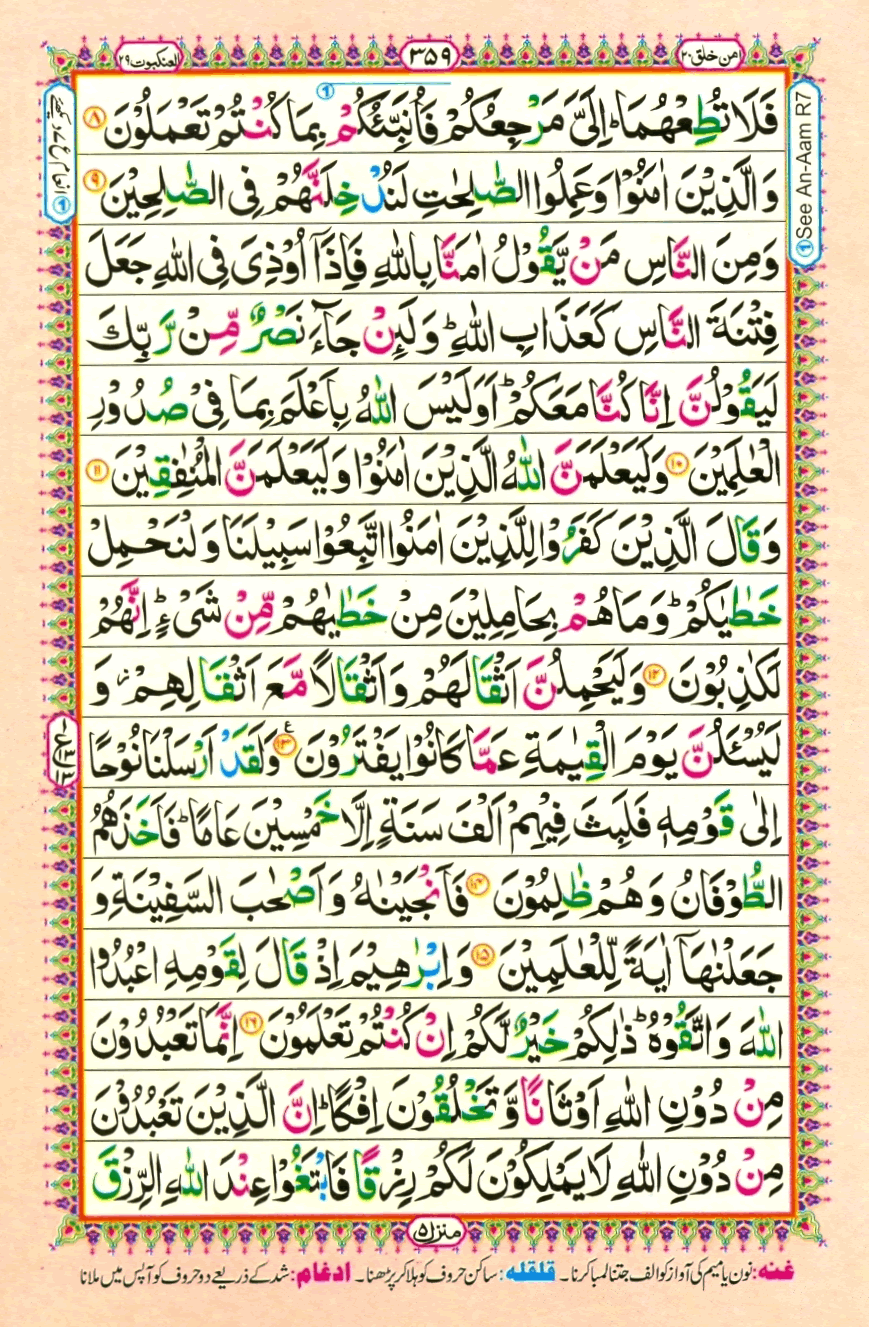 امن خلق ۲۰
۳۵۹
العنكبوت ۲۹
فَلَا تُطِعْهُمَا ؕ اِلَیَّ مَرْجِعُكُمْ فَاُنَبِّئُكُمْ بِمَا كُنْتُمْ تَعْمَلُوْنَ ۸
وَ الَّذِیْنَ اٰمَنُوْا وَ عَمِلُوا الصّٰلِحٰتِ لَنُدْخِلَنَّهُمْ فِی الصّٰلِحِیْنَ ۹
وَ مِنَ النَّاسِ مَنْ یَّقُوْلُ اٰمَنَّا بِاللّٰهِ فَاِذَاۤ اُوْذِیَ فِی اللّٰهِ جَعَلَ
فِتْنَةَ النَّاسِ كَعَذَابِ اللّٰهِ ؕ وَ لَئِنْ جَآءَ نَصْرٌ مِّنْ رَّبِّكَ
لَیَقُوْلُنَّ اِنَّا كُنَّا مَعَكُمْ ؕ اَوَ لَیْسَ اللّٰهُ بِاَعْلَمَ بِمَا فِیْ صُدُوْرِ
الْعٰلَمِیْنَ ۱۰ وَ لَیَعْلَمَنَّ اللّٰهُ الَّذِیْنَ اٰمَنُوْا وَ لَیَعْلَمَنَّ الْمُنٰفِقِیْنَ ۱۱
وَ قَالَ الَّذِیْنَ كَفَرُوْا لِلَّذِیْنَ اٰمَنُوا اتَّبِعُوْا سَبِیْلَنَا وَ لْنَحْمِلْ
خَطٰیٰكُمْ ؕ وَ مَا هُمْ بِحَامِلِیْنَ مِنْ خَطٰیٰهُمْ مِّنْ شَیْءٍ ؕ اِنَّهُمْ
لَكٰذِبُوْنَ ۱۲ وَ لَیَحْمِلُنَّ اَثْقَالَهُمْ وَ اَثْقَالًا مَّعَ اَثْقَالِهِمْ ؗ وَ
لَیُسْـَٔلُنَّ یَوْمَ الْقِیٰمَةِ عَمَّا كَانُوْا یَفْتَرُوْنَ ۱۳ ع وَ لَقَدْ اَرْسَلْنَا نُوْحًا
اِلٰی قَوْمِهٖ فَلَبِثَ فِیْهِمْ اَلْفَ سَنَةٍ اِلَّا خَمْسِیْنَ عَامًا ؕ فَاَخَذَهُمُ
الطُّوْفَانُ وَ هُمْ ظٰلِمُوْنَ ۱۴ فَاَنْجَیْنٰهُ وَ اَصْحٰبَ السَّفِیْنَةِ وَ
جَعَلْنٰهَاۤ اٰیَةً لِّلْعٰلَمِیْنَ ۱۵ وَ اِبْرٰهِیْمَ اِذْ قَالَ لِقَوْمِهِ اعْبُدُوا
اللّٰهَ وَ اتَّقُوْهُ ؕ ذٰلِكُمْ خَیْرٌ لَّكُمْ اِنْ كُنْتُمْ تَعْلَمُوْنَ ۱۶ اِنَّمَا تَعْبُدُوْنَ
مِنْ دُوْنِ اللّٰهِ اَوْثَانًا وَّ تَخْلُقُوْنَ اِفْكًا ؕ اِنَّ الَّذِیْنَ تَعْبُدُوْنَ
مِنْ دُوْنِ اللّٰهِ لَا یَمْلِكُوْنَ لَكُمْ رِزْقًا فَابْتَغُوْا عِنْدَ اللّٰهِ الرِّزْقَ
① See An-Aam R7
منزل ۵
غنه: نون یا میم کی آواز کو الف جتنا لمبا کرنا۔ قلقله: ساکن حروف کو ہلا کر پڑھنا۔ ادغام: شد کے ذریعے دو حروف کو آپس میں ملانا